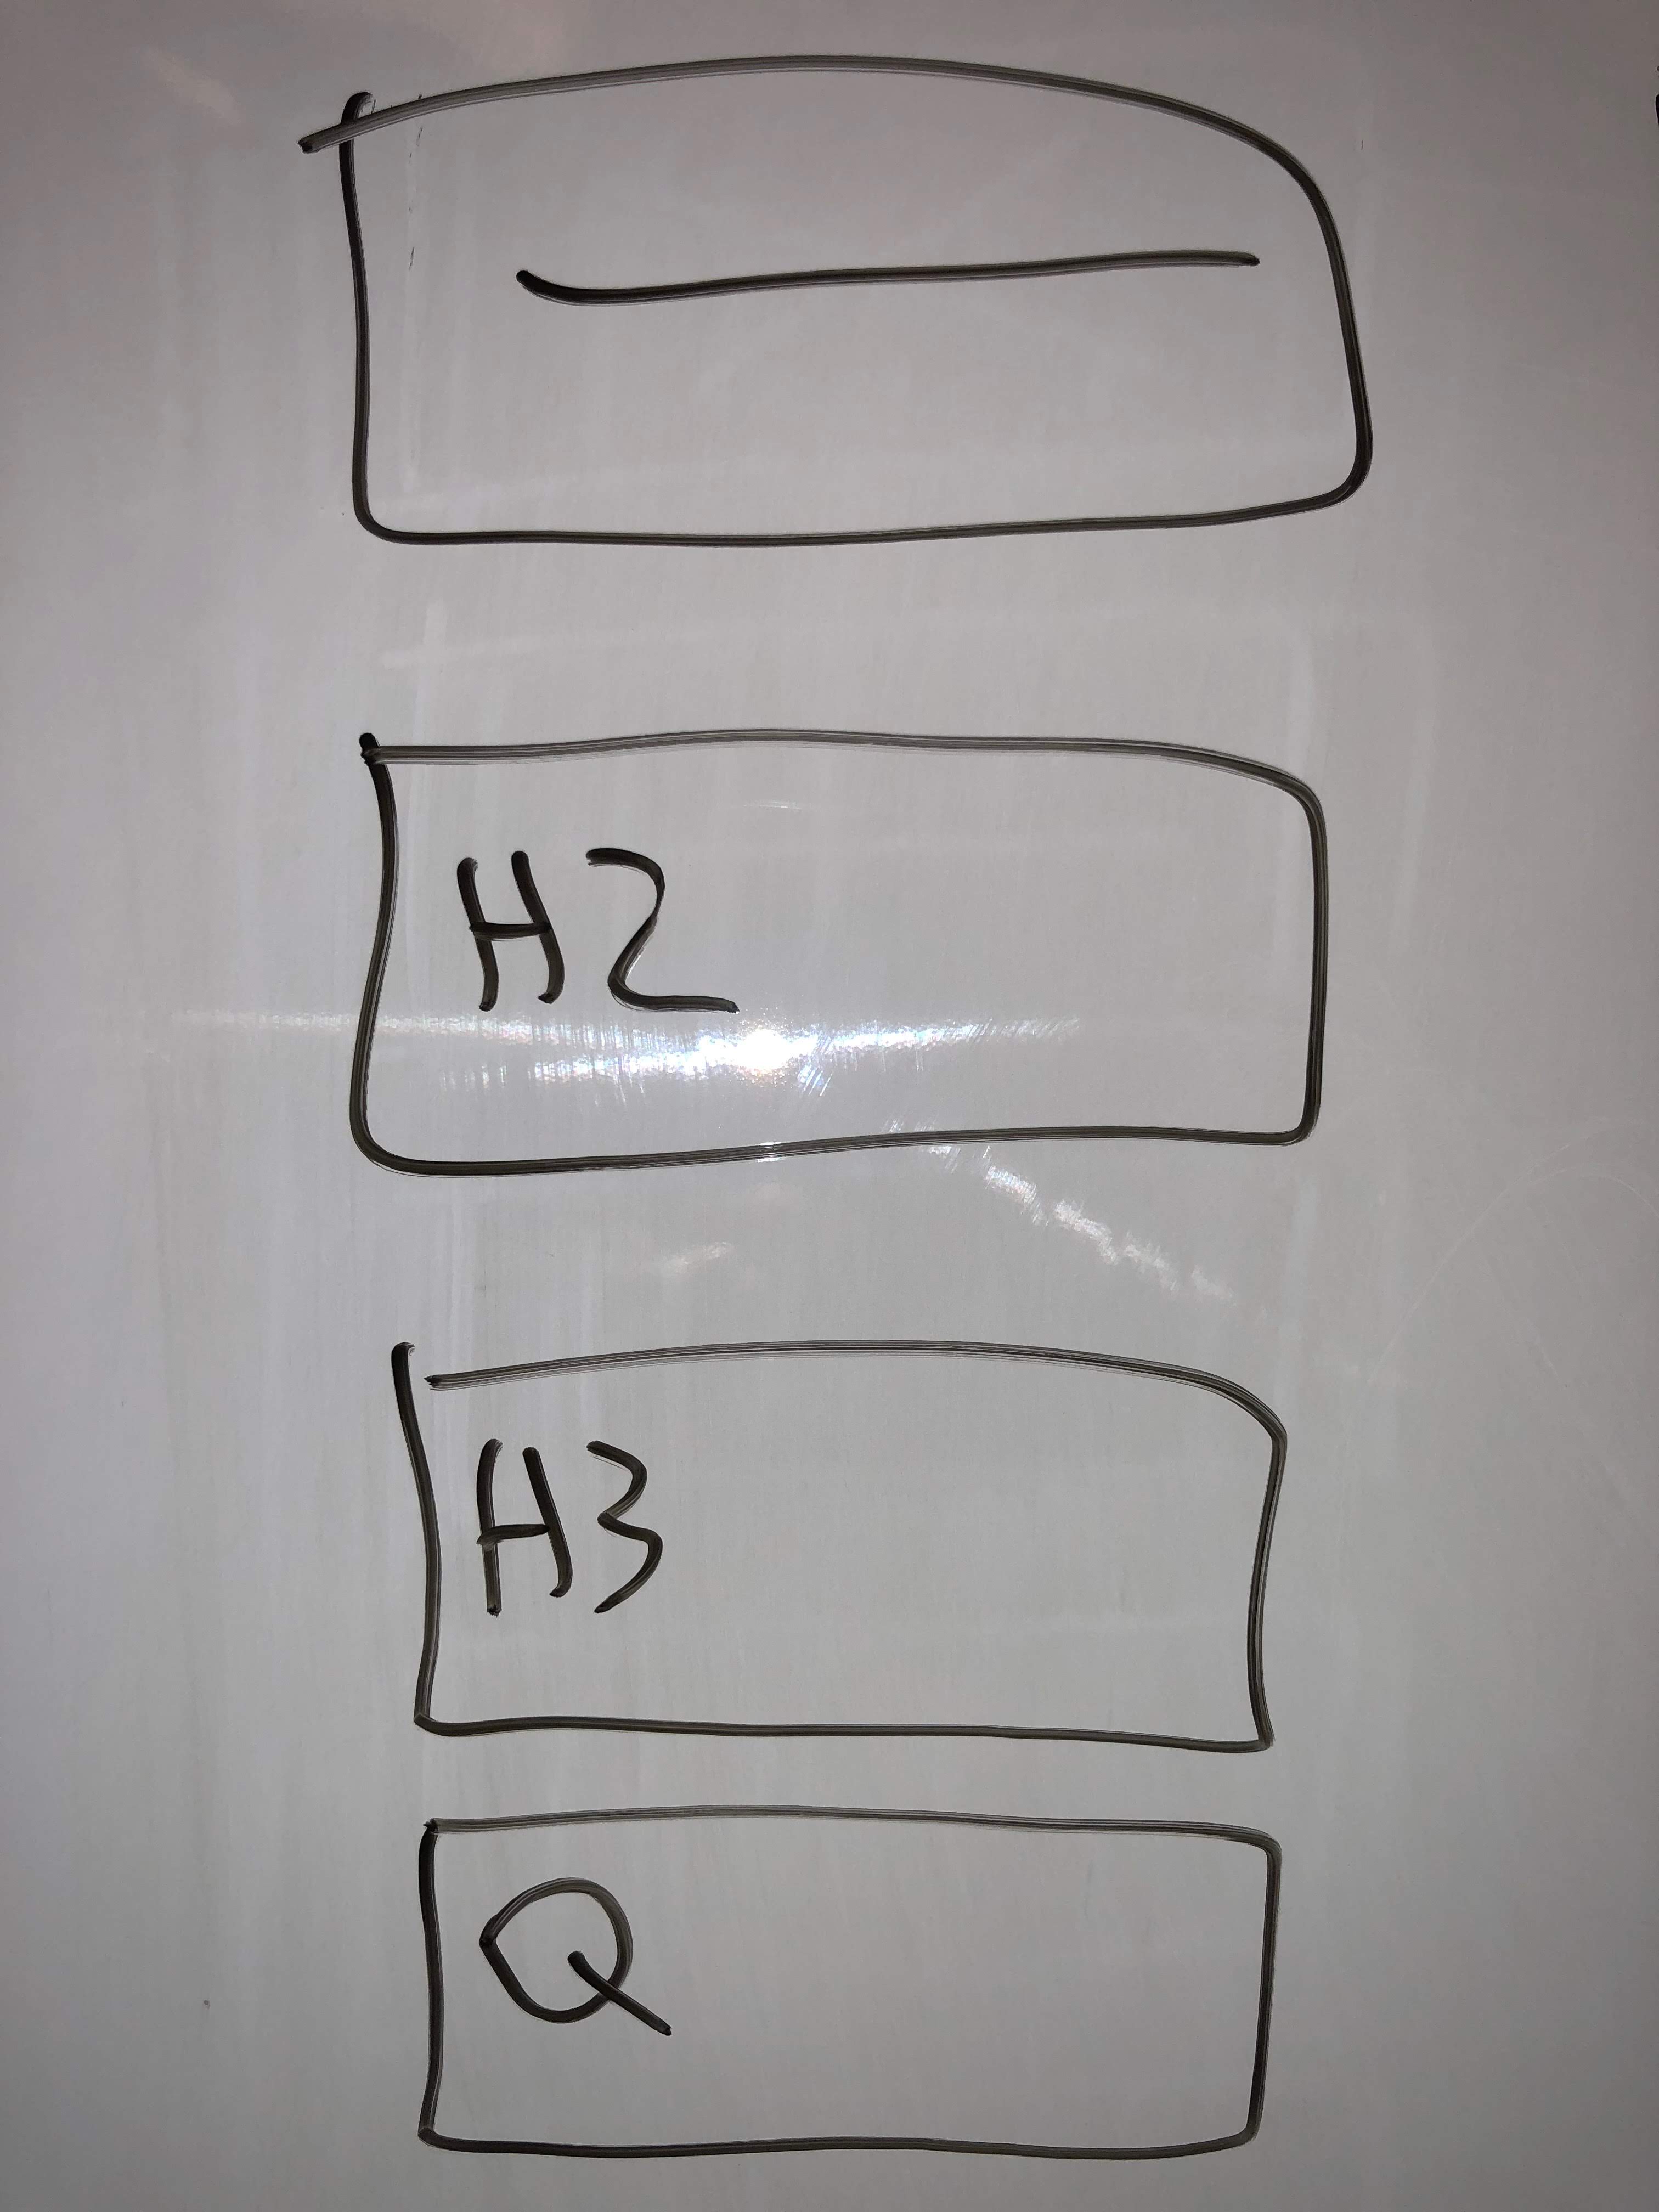 H2
H3
Q